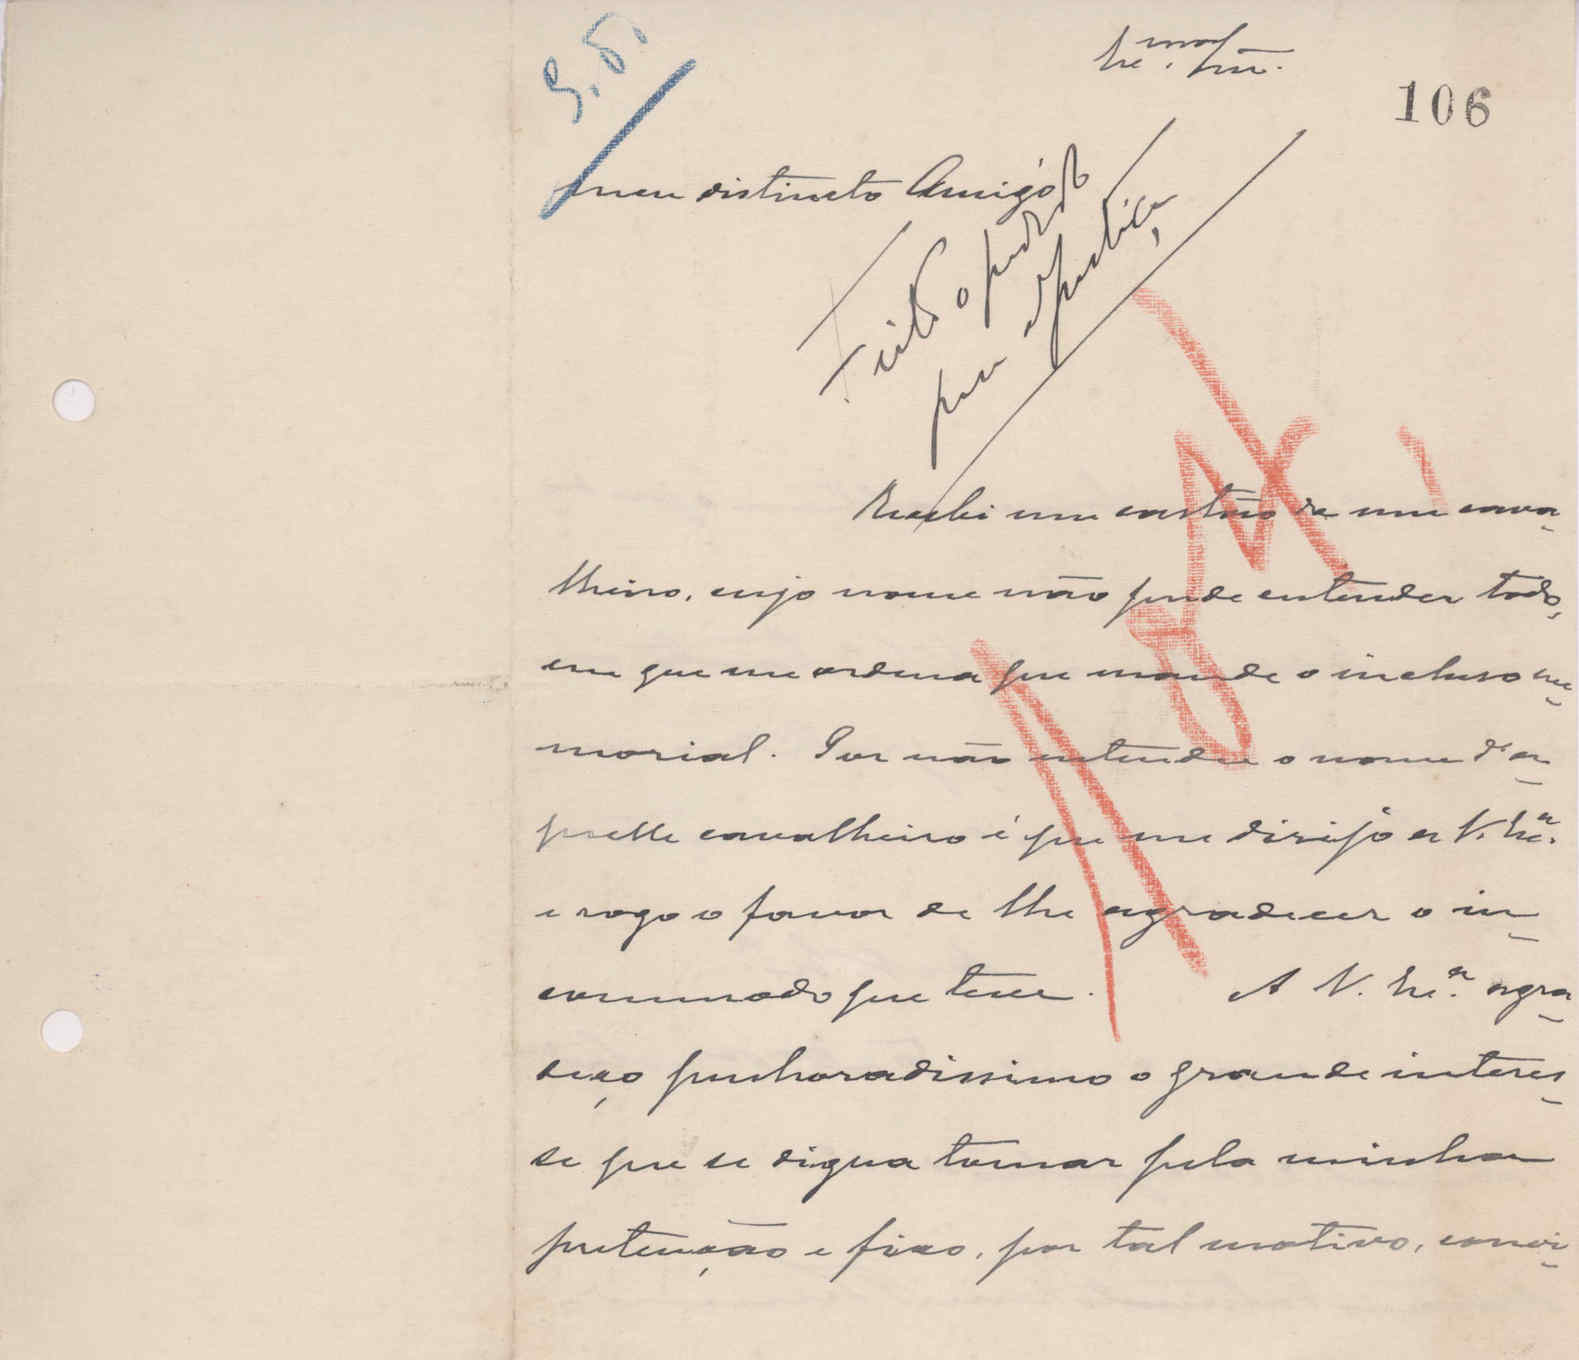 S. J.
Ex.mo Snr.
106
Meu distincto Amigo
Feito o pedido
para Justiça
Recebi um cartão de um cava-
lheiro, cujo nome não pude entender todo,
em que me ordena que mande o incluso me-
morial. Por não entender o nome d'a-
quelle cavalheiro é que me dirijo a V. Ex.a
e rogo o favor de lhe agradecer o in-
commodo que teve. A V. Ex.a agra-
deço penhoradissimo o grande interes-
se que se digna tomar pela minha
pretenção e fico, por tal motivo, convi-